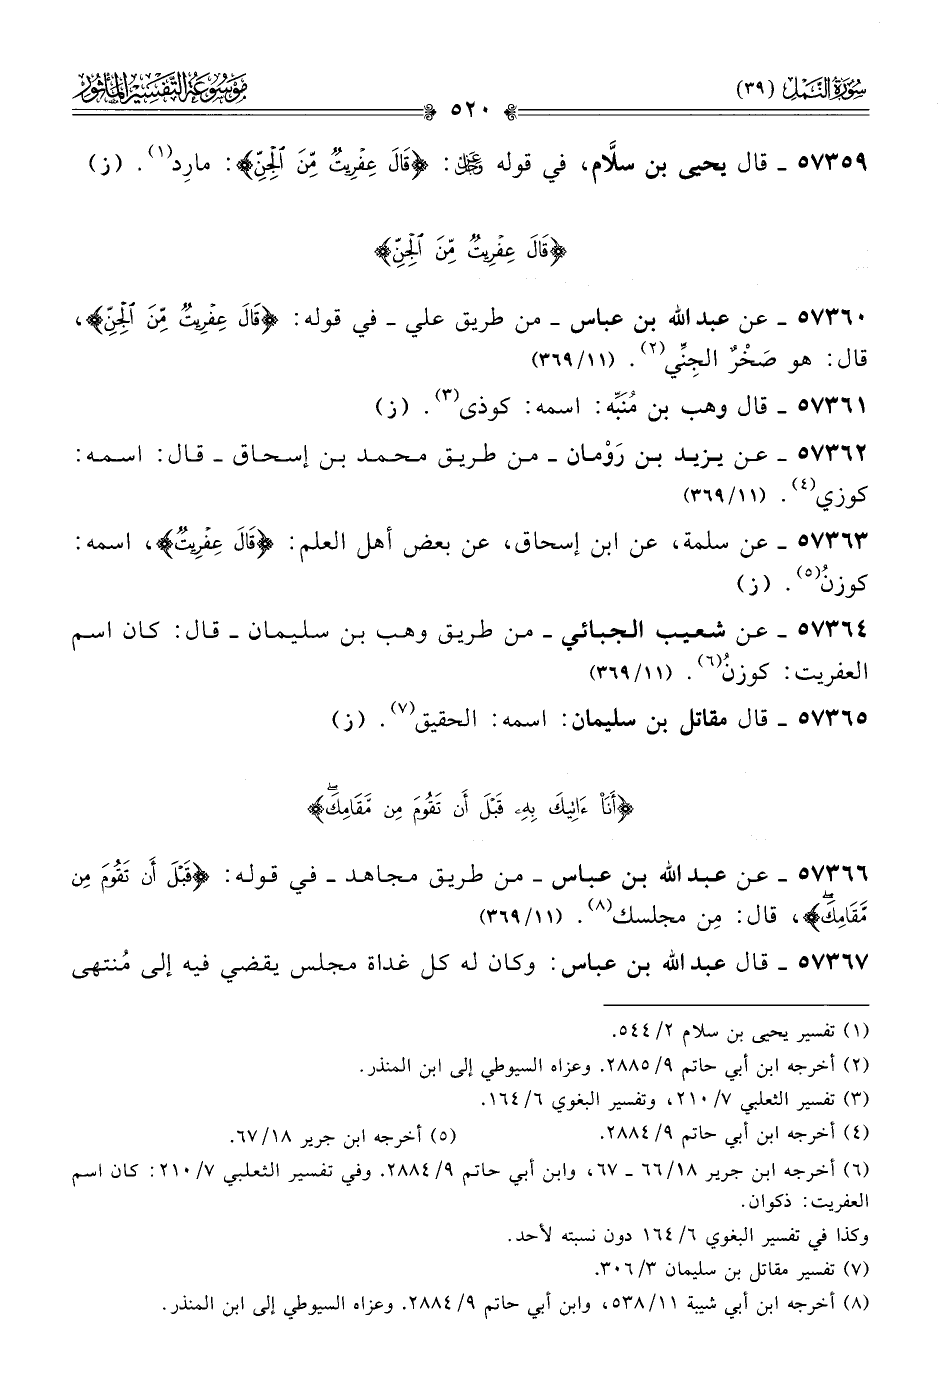 سُورَةُ النَّمل (٣٩)
مَوْسُوعَةُ التَّفْسِيرِ المَأْثُور
٥٢٠
٥٧٣٥٩ ـ قال يحيى بن سلَّام، في قوله ﷿: ﴿قَالَ عِفْرِيتٌ مِّنَ ٱلْجِنِّ﴾: مارِد(١). (ز)
﴿قَالَ عِفْرِيتٌ مِّنَ ٱلْجِنِّ﴾
٥٧٣٦٠ ـ عن عبد الله بن عباس ـ من طريق علي ـ في قوله: ﴿قَالَ عِفْرِيتٌ مِّنَ ٱلْجِنِّ﴾،
قال: هو صَخْرٌ الجِنِّي(٢). (٣٦٩/١١)
٥٧٣٦١ ـ قال وهب بن مُنَبِّه: اسمه: كوذى(٣). (ز)
٥٧٣٦٢ ـ عن يزيد بن رَوْمان ـ من طريق محمد بن إسحاق ـ قال: اسمه:
كوزي(٤). (٣٦٩/١١)
٥٧٣٦٣ ـ عن سلمة، عن ابن إسحاق، عن بعض أهل العلم: ﴿قَالَ عِفْرِيتٌ﴾، اسمه:
كوزنُ(٥). (ز)
٥٧٣٦٤ ـ عن شعيب الجبائي ـ من طريق وهب بن سليمان ـ قال: كان اسم
العفريت: كوزنُ(٦). (٣٦٩/١١)
٥٧٣٦٥ ـ قال مقاتل بن سليمان: اسمه: الحقيق(٧). (ز)
﴿أَنَا۠ ءَاتِيكَ بِهِۦ قَبْلَ أَن تَقُومَ مِن مَّقَامِكَۖ﴾
٥٧٣٦٦ ـ عن عبد الله بن عباس ـ من طريق مجاهد ـ في قوله: ﴿قَبْلَ أَن تَقُومَ مِن
مَّقَامِكَۖ﴾، قال: مِن مجلسك(٨). (٣٦٩/١١)
٥٧٣٦٧ ـ قال عبد الله بن عباس: وكان له كل غداة مجلس يقضي فيه إلى مُنتهى
(١) تفسير يحيى بن سلام ٢/ ٥٤٤.
(٢) أخرجه ابن أبي حاتم ٩/ ٢٨٨٥. وعزاه السيوطي إلى ابن المنذر.
(٣) تفسير الثعلبي ٧/ ٢١٠، وتفسير البغوي ٦/ ١٦٤.
(٤) أخرجه ابن أبي حاتم ٩/ ٢٨٨٤. (٥) أخرجه ابن جرير ١٨/ ٦٧.
(٦) أخرجه ابن جرير ١٨/ ٦٦ ـ ٦٧، وابن أبي حاتم ٩/ ٢٨٨٤. وفي تفسير الثعلبي ٧/ ٢١٠: كان اسم
العفريت: ذكوان.
وكذا في تفسير البغوي ٦/ ١٦٤ دون نسبته لأحد.
(٧) تفسير مقاتل بن سليمان ٣/ ٣٠٦.
(٨) أخرجه ابن أبي شيبة ١١/ ٥٣٨، وابن أبي حاتم ٩/ ٢٨٨٤. وعزاه السيوطي إلى ابن المنذر.